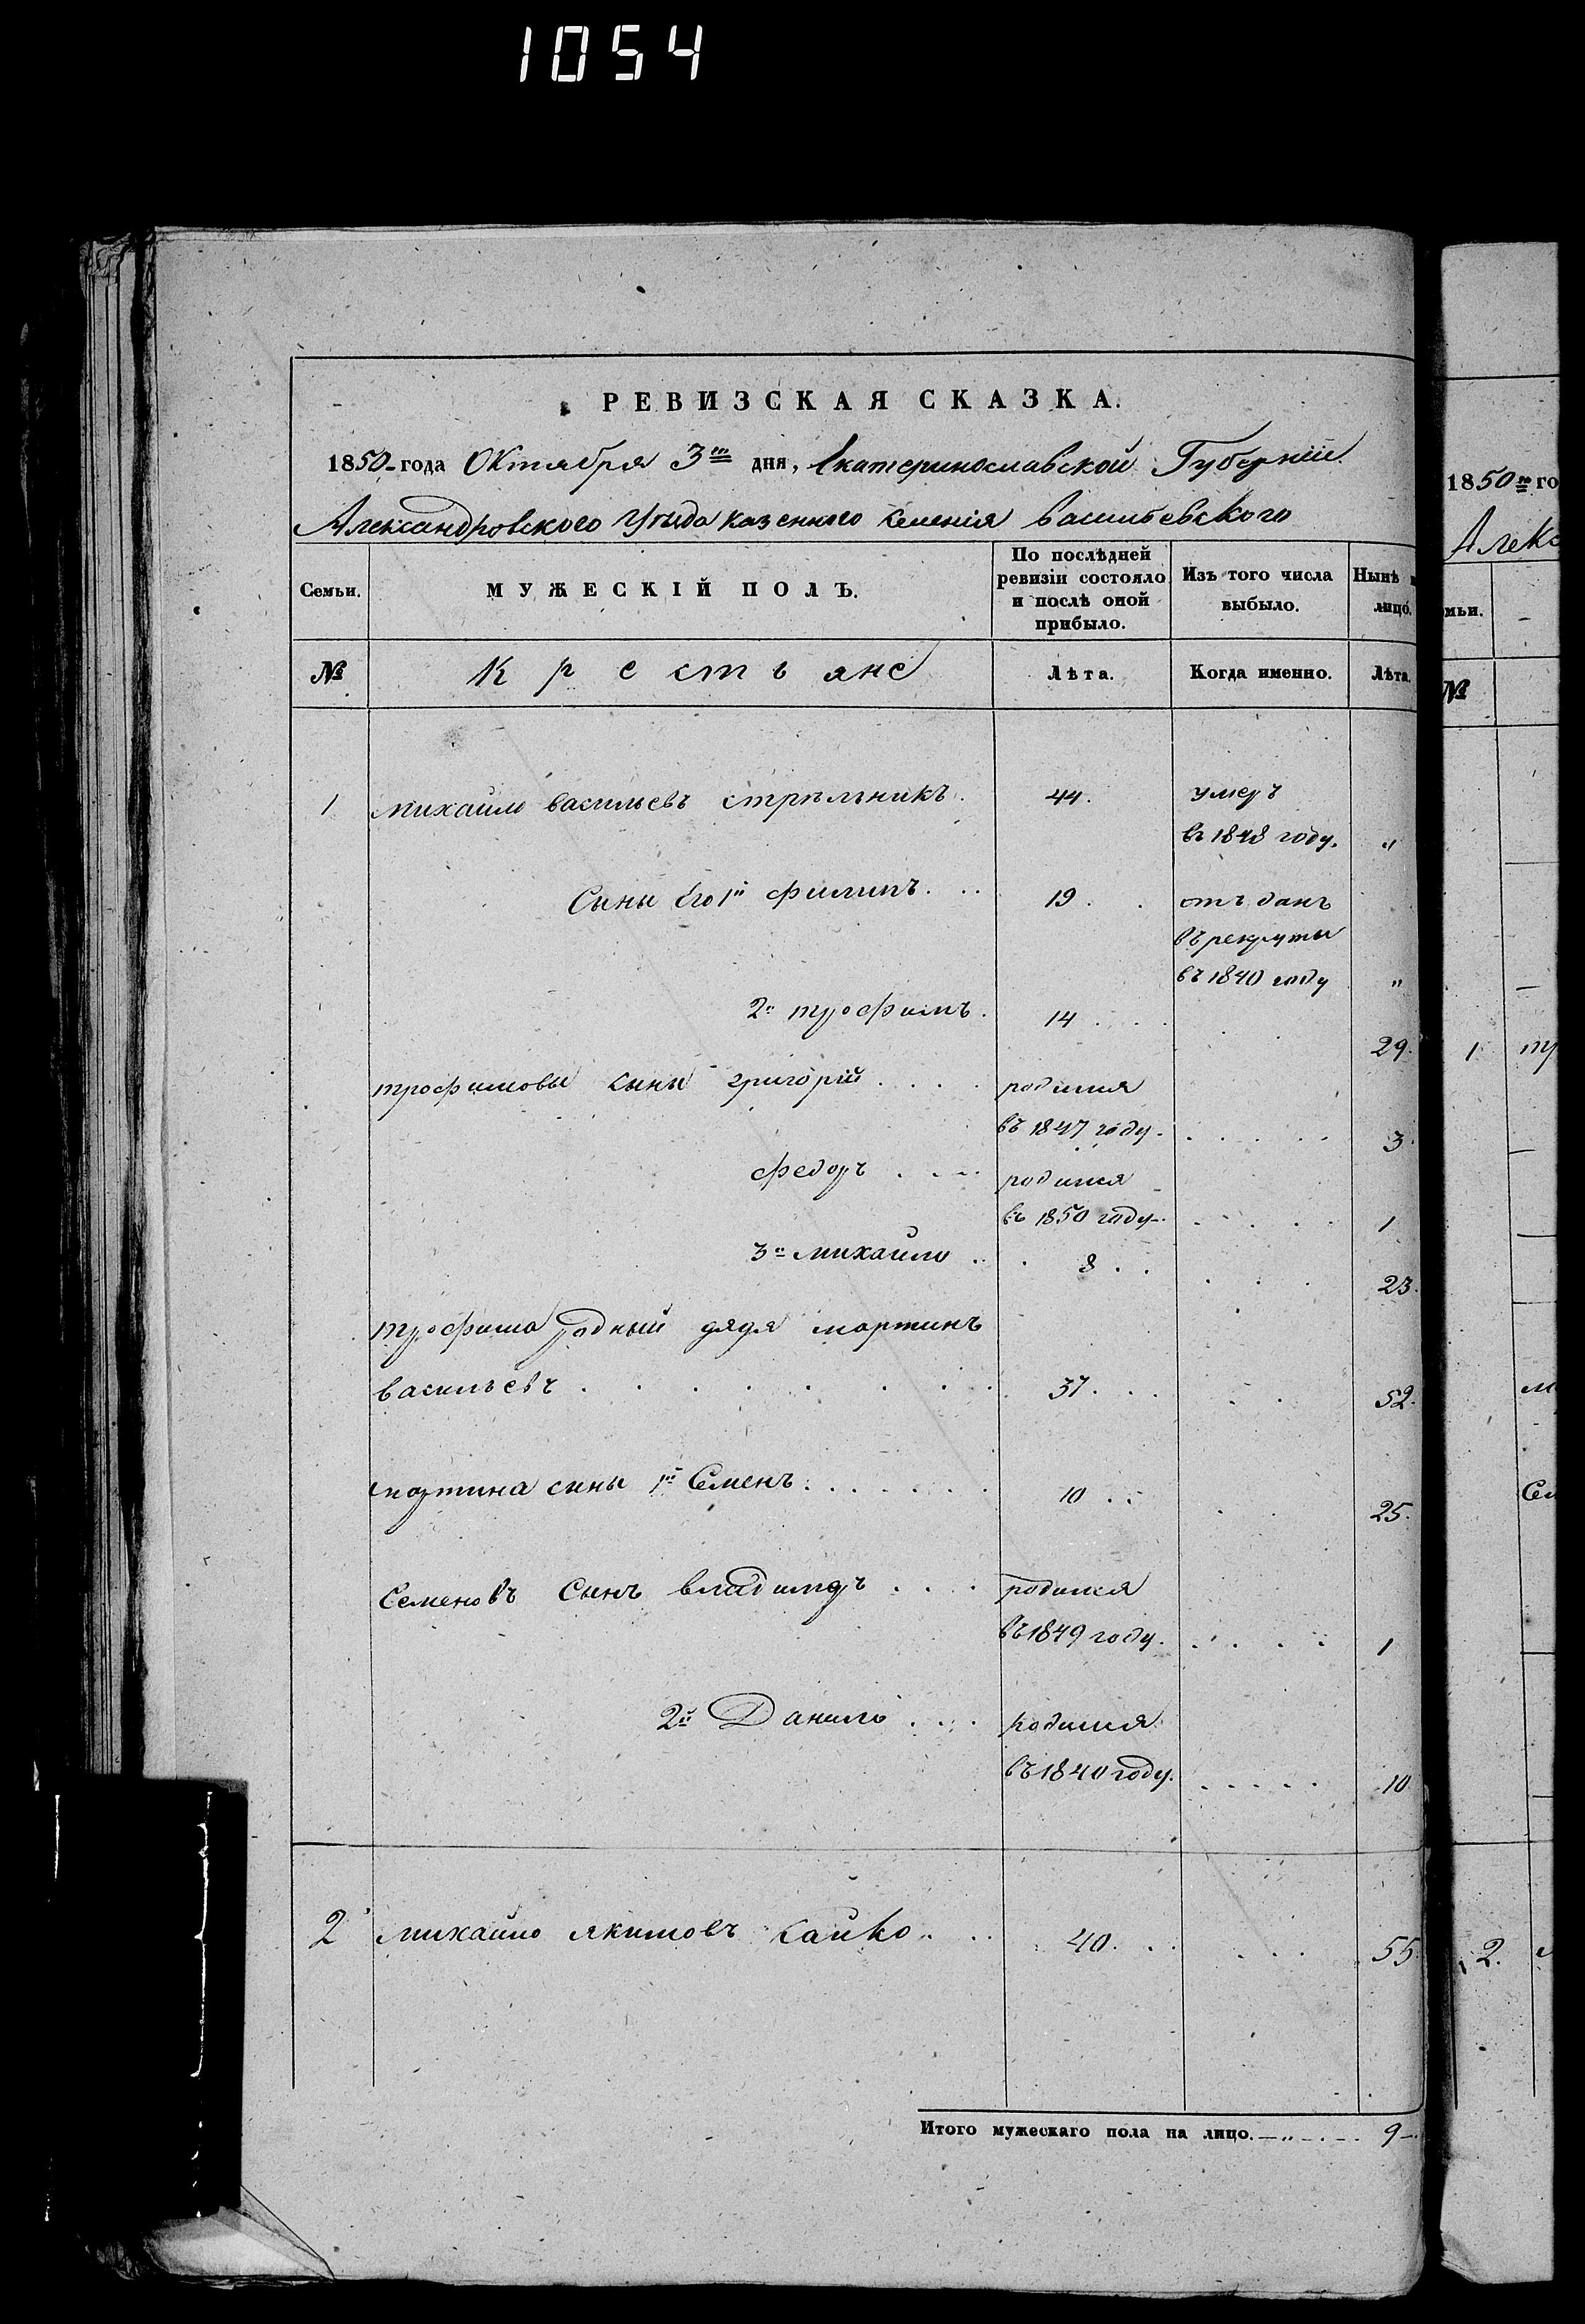 1054
РЕВИЗСКАЯ СКАЗКА.
1850 года Октября 3го дня, Екатеринославской Губернии
Александровского Уѣзда казенного селенія васильевского
Семьи. МУЖЕСКІЙ ПОЛЪ. По послѣдней ревизіи состояло и послѣ оной прибыло. Изъ того числа выбыло. Нынѣ лицо.
№ Крестьяне Лѣта. Когда именно. Лѣта.
1 михайло васильевъ стрѣльникъ. 44. умеръ
въ 1848 году. "
Сыны Его 1й филипъ. 19. отъ данъ
въ рекруты
въ 1840 году "
2й трофимъ. 14 29.
трофимовы сыны григорій родился
въ 1847 году. 3
федоръ родился
въ 1850 году 1
3й михайло 8 23.
трофима родный дядя мартинъ
васильевъ 37. 52.
мартина сыны 1й Семенъ 10 25.
Семеновъ Сынъ владимеръ родился
въ 1849 году. 1
2й Данило родился
въ 1840 году. 10
2 михайло якимовъ сайко 40. 55.
Итого мужескаго пола на лицо. 9
1850го го
Алекс
мьи.
№
1 тр
Сем
2.